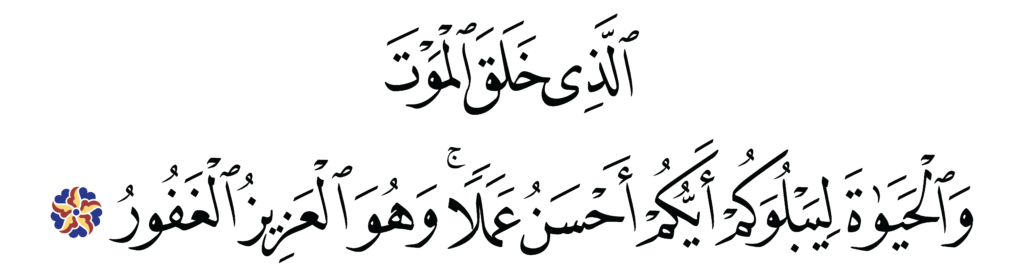 ٱلَّذِى خَلَقَ ٱلْمَوْتَ
وَٱلْحَيَوٰةَ لِيَبْلُوَكُمْ أَيُّكُمْ أَحْسَنُ عَمَلًا ۚ وَهُوَ ٱلْعَزِيزُ ٱلْغَفُورُ